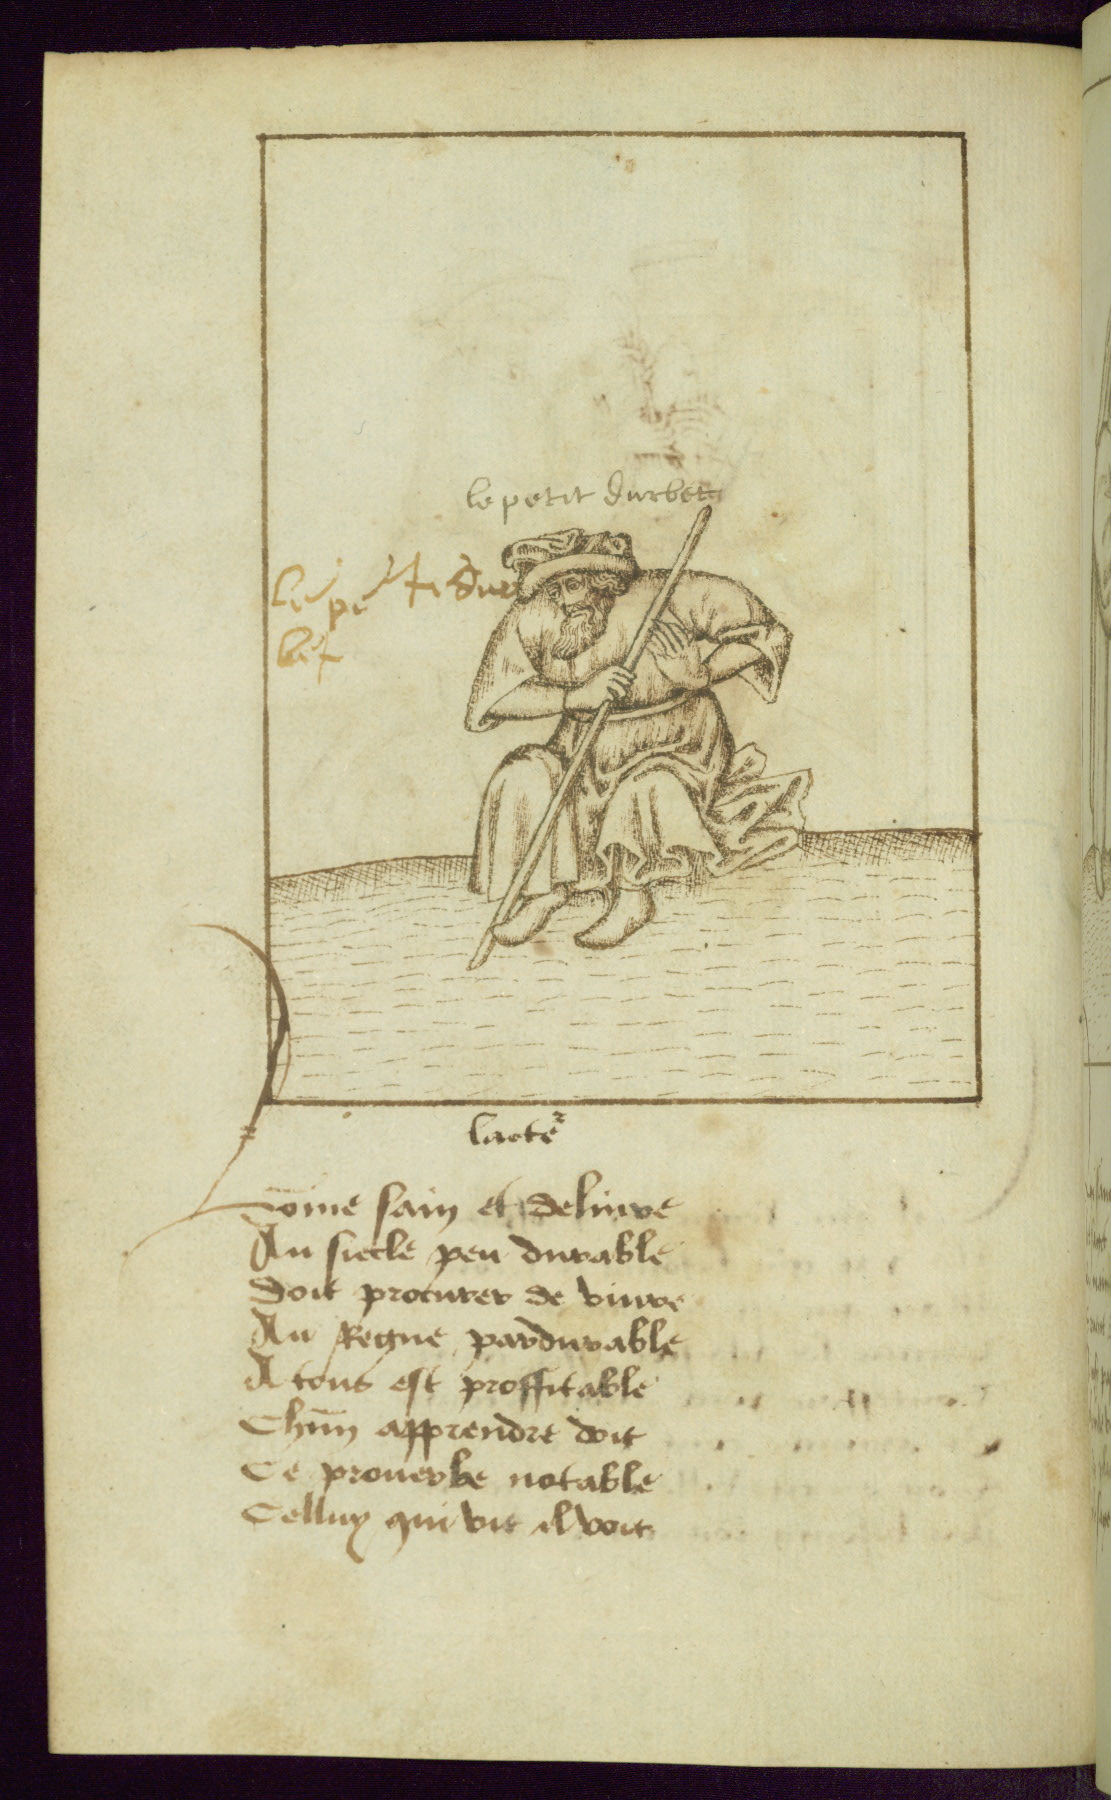 le petit durbet
le petit dur
bet
lacte²
Home sain et delivre
Au siecle peu durable
Doit procurer de vivre
Au Regne pardurable
A tous est proffitable
Chũn apprendre doit
Ce proverbe notable
Celluy qui vit il voit